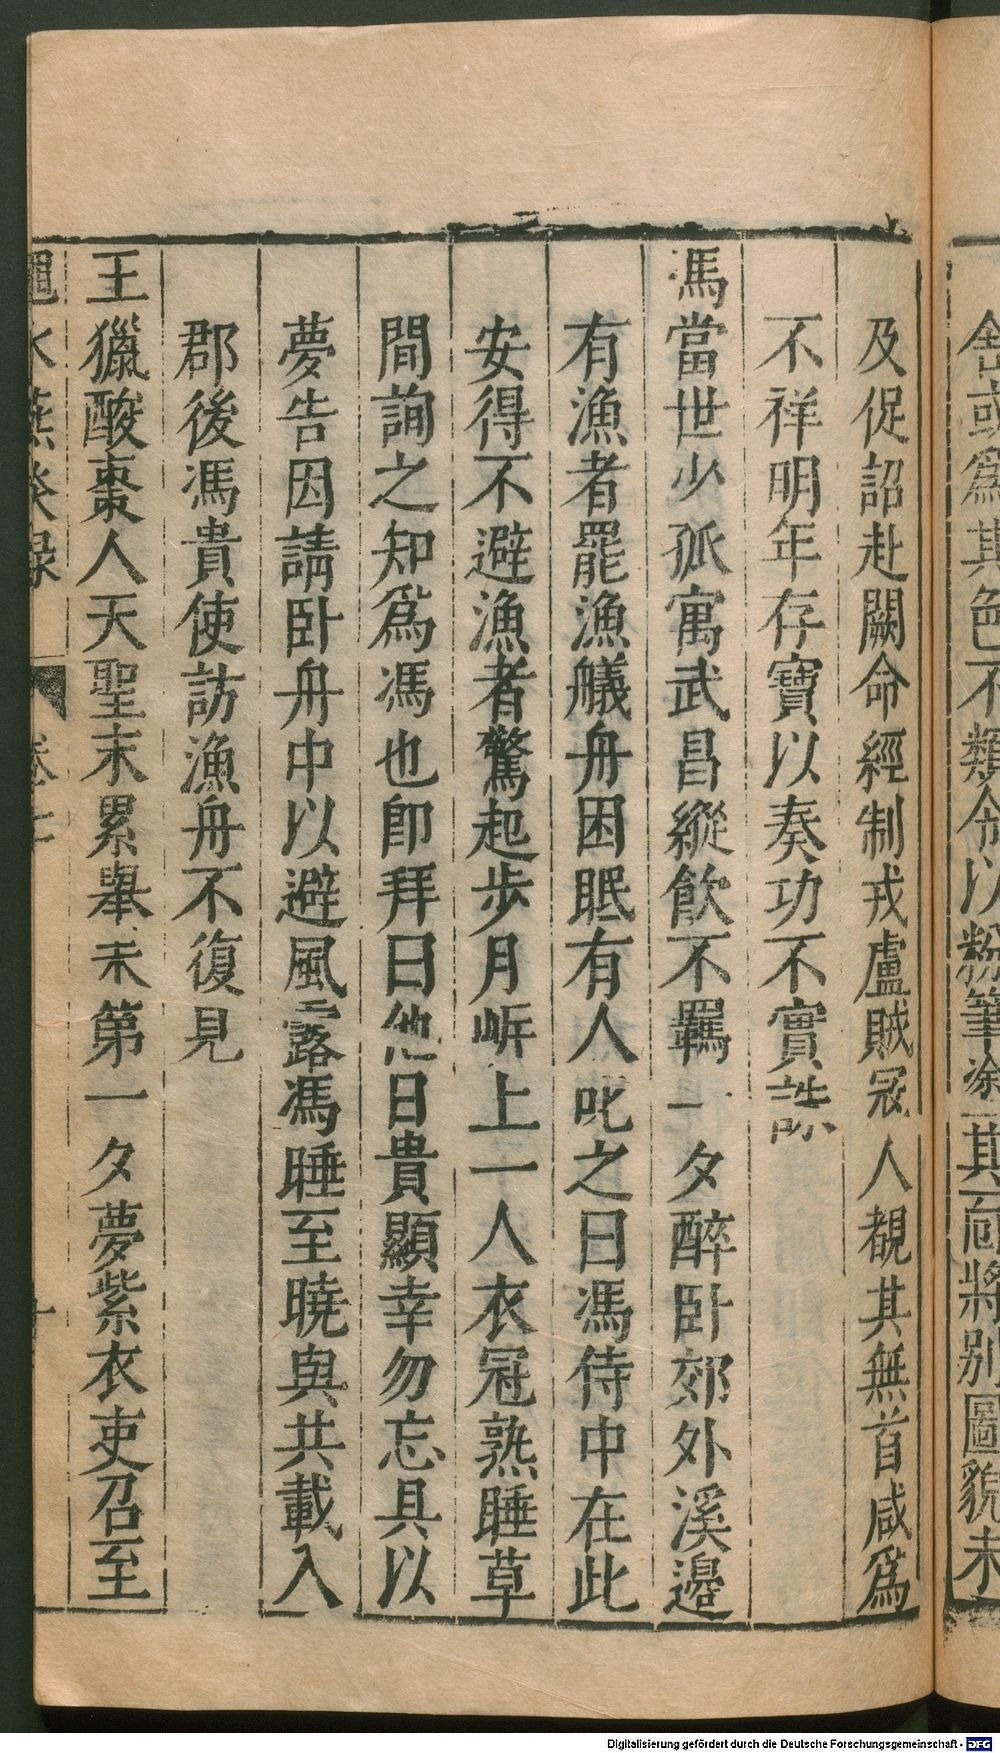 舍或爲其色不類命以粉筆塗其面將別圖貌未
及促詔赴闕命經制戎盧賊冦人覩其無首咸爲
不祥明年存寶以奏功不實誅
馮當世少孤寓武昌縱飲不羈一夕醉卧郊外溪邉
有漁者罷漁艤舟困眠有人叱之曰馮侍中在此
安得不避漁者驚起步月岍上一人衣冠熟睡草
間詢之知爲馮也卽拜曰他日貴顯幸勿忘具以
夢告因請卧舟中以避風露馮睡至曉與共載入
郡後馮貴使訪漁舟不復見
王獵酸棗人天聖末累舉未第一夕夢紫衣吏召至
澠水燕談錄 卷七 十
Digitalisierung gefördert durch die Deutsche Forschungsgemeinschaft - DFG